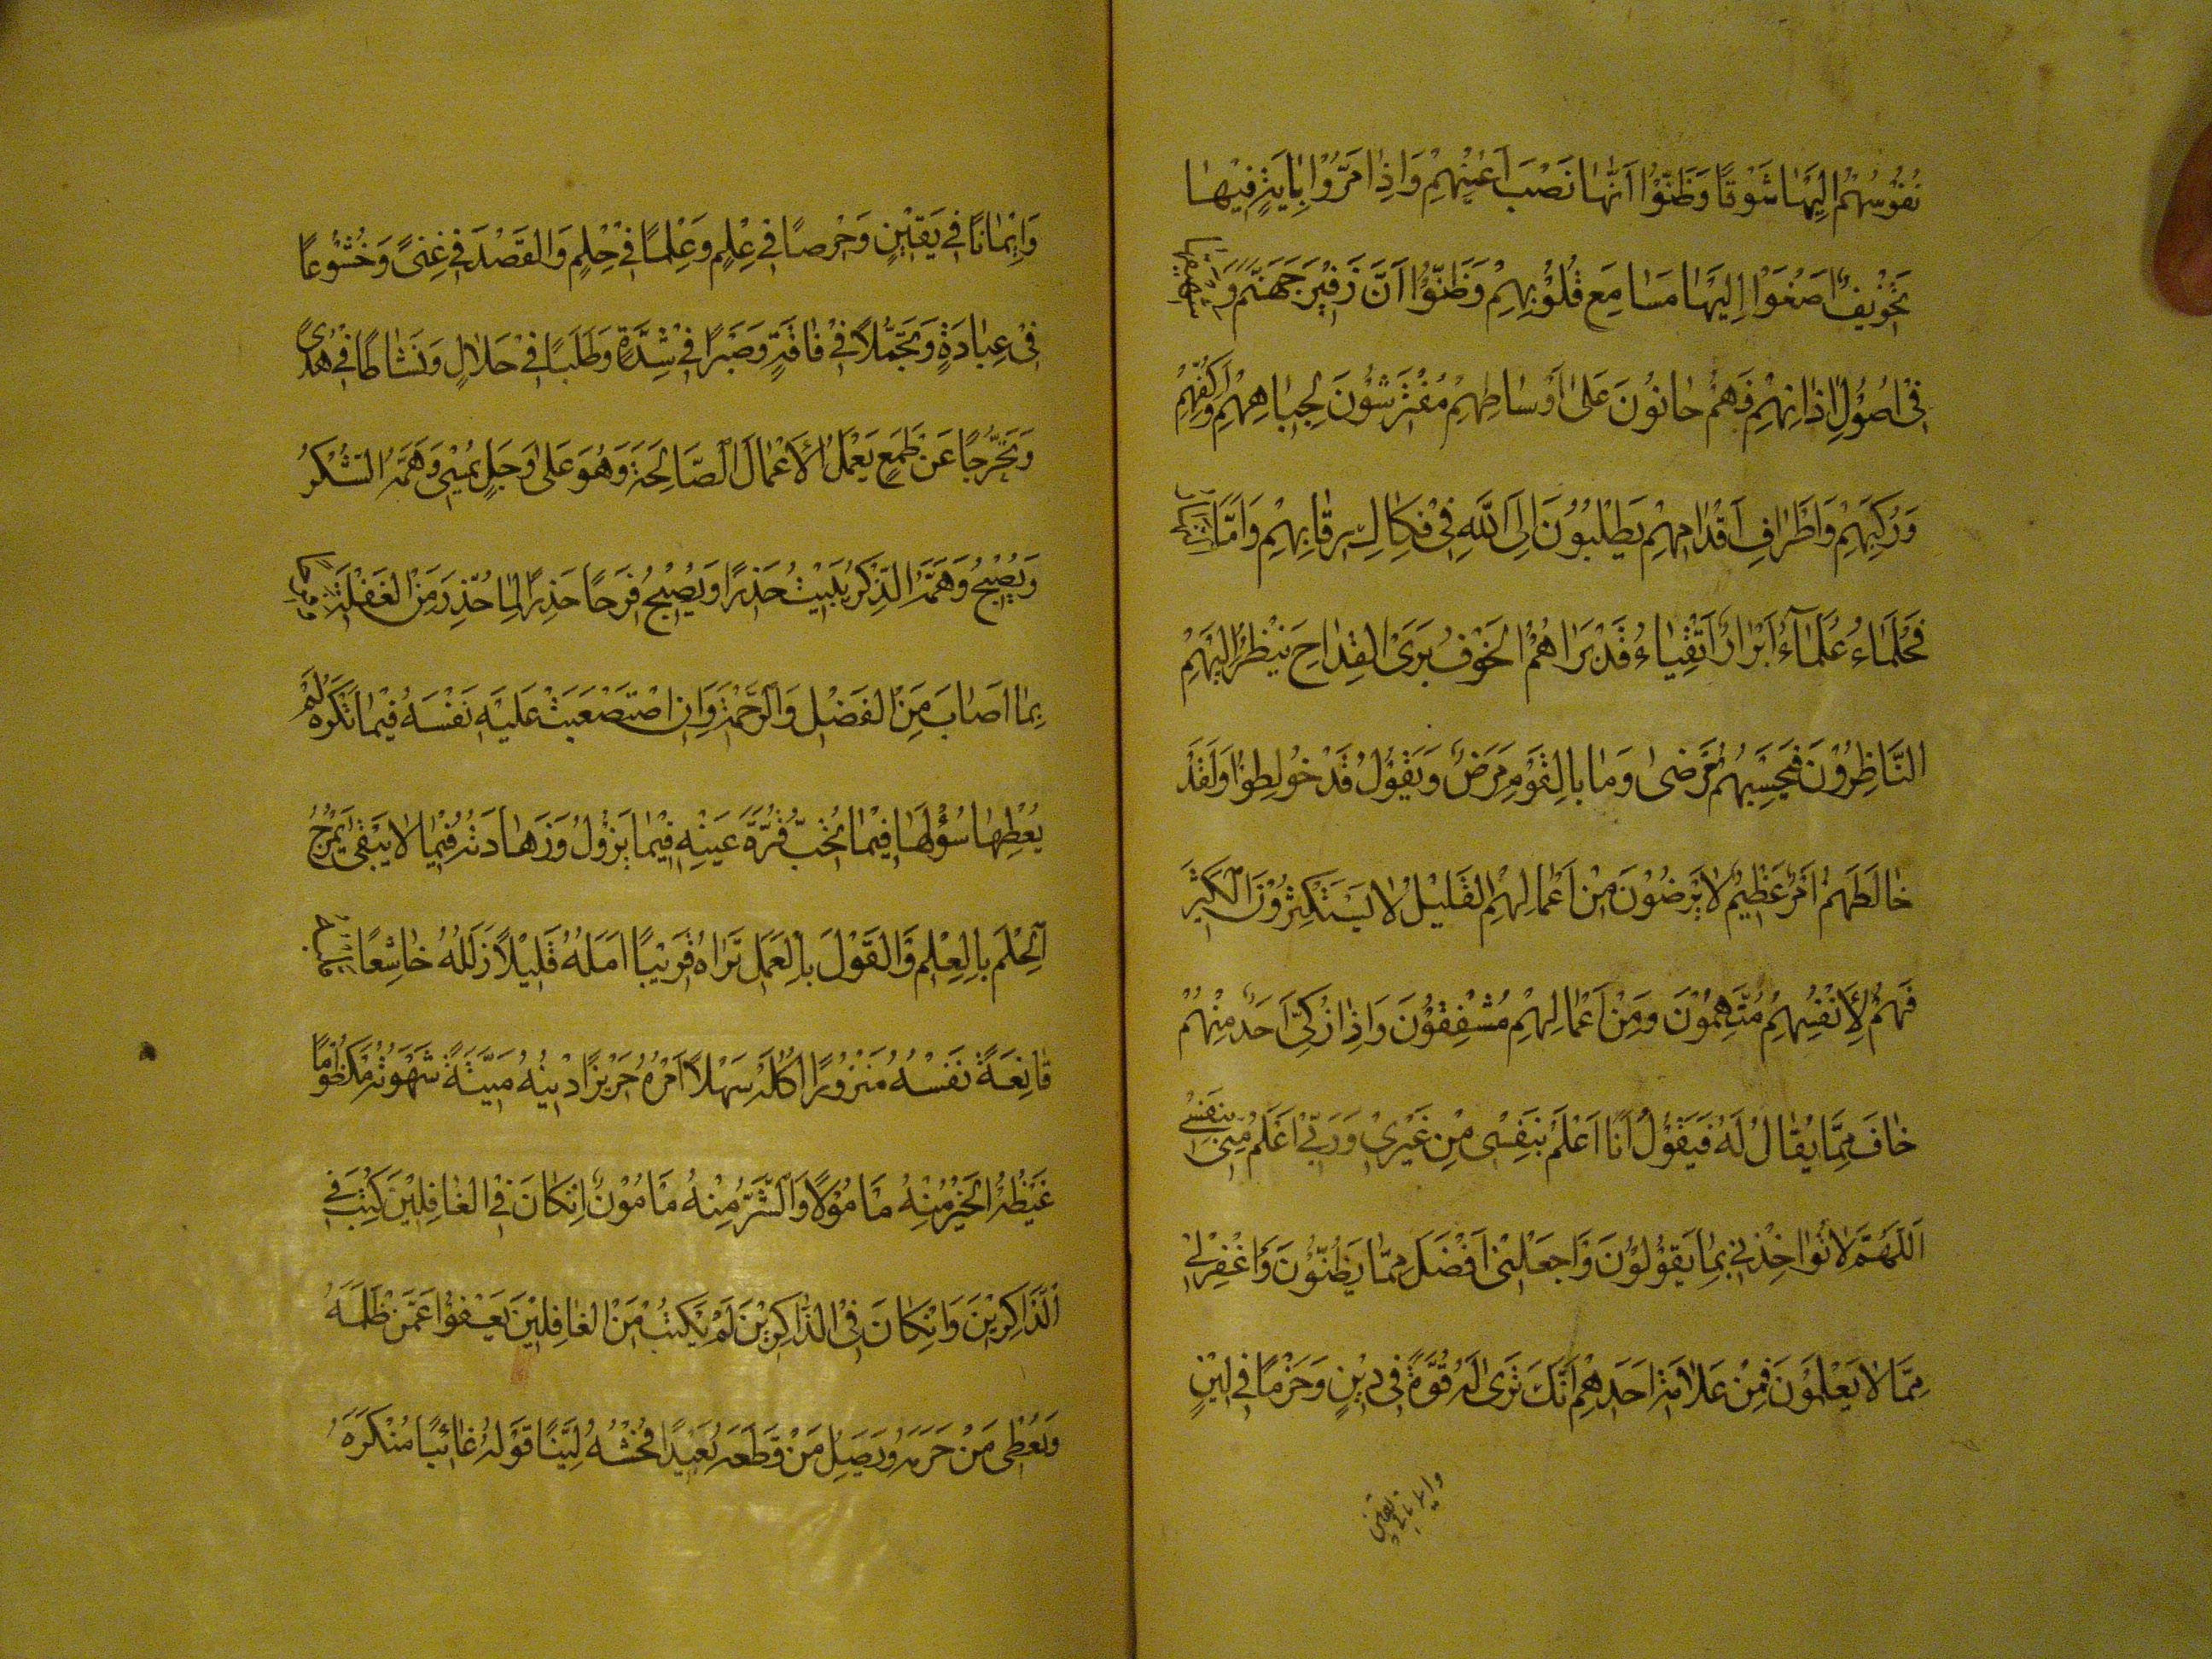 نُفُوْسُهُمْ اِلَيْهَا شَوْقًا وَظَنُّوْا اَنَّهَا نَصْبَ اَعْيُنِهِمْ وَاِذَا مَرُّوْا بِاٰيَةٍ فِيْهَا
تَخْوِيْفٌ اَصْغَوْا اِلَيْهَا مَسَامِعَ قُلُوْبِهِمْ وَظَنُّوْا اَنَّ زَفِيْرَ جَهَنَّمَ وَشَهِيْقَهَا
فِىْ اُصُوْلِ اٰذَانِهِمْ فَهُمْ حَانُوْنَ عَلٰى اَوْسَاطِهِمْ مُفْتَرِشُوْنَ لِجِبَاهِهِمْ وَاَكُفِّهِمْ
وَرُكَبِهِمْ وَاَطْرَافِ اَقْدَامِهِمْ يَطْلُبُوْنَ اِلَى اللّٰهِ فِىْ فِكَاكِ رِقَابِهِمْ وَاَمَّا النَّهَارَ
فَحُلَمَاءُ عُلَمَآءُ اَبْرَارٌ اَتْقِيَاءُ قَدْ بَرَاهُمُ الْخَوْفُ بَرْىَ الْقِدَاحِ يَنْظُرُ اِلَيْهِمْ
النَّاظِرُوْنَ فَيَحْسِبُهُمْ مَّرْضٰى وَمَا بِالْقَوْمِ مَرَضٌ وَيَقُوْلُ قَدْ خُوْلِطُوْا وَلَقَدْ
خَالَطَهُمْ اَمْرٌ عَظِيْمٌ لَا يَرْضَوْنَ مِنْ اَعْمَالِهِمُ الْقَلِيْلَ لَا يَسْتَكْثِرُوْنَ الْكَثِيْرَ
فَهُمْ لِاَنْفُسِهِمْ مُتَّهِمُوْنَ وَمِنْ اَعْمَالِهِمْ مُشْفِقُوْنَ وَاِذَا زُكِّىَ اَحَدٌ مِنْهُمْ
خَافَ مِمَّا يُقَالُ لَهُ فَيَقُوْلُ اَنَا اَعْلَمُ بِنَفْسِىْ مِنْ غَيْرِىْ وَرَبِّىْ اَعْلَمُ مِنِّىْ بِنَفْسِىْ
اَللّٰهُمَّ لَا تُؤَاخِذْنِىْ بِمَا يَقُوْلُوْنَ وَاجْعَلْنِىْ اَفْضَلَ مِمَّا يَظُنُّوْنَ وَاغْفِرْلِىْ
مِمَّا لَا يَعْلَمُوْنَ فَمِنْ عَلَامَةِ اَحَدِهِمْ اَنَّكَ تَرٰى لَهُ قُوَّةً فِىْ دِيْنٍ وَحَزْمًا فِىْ لِيْنٍ
وايمانا في يقين
وَاِيْمَانًا فِىْ يَقِيْنٍ وَحِرْصًا فِىْ عِلْمٍ وَعِلْمًا فِىْ حِلْمٍ وَالْقَصْدَ فِىْ غِنًى وَخُشُوْعًا
فِىْ عِبَادَةٍ وَتَجَمُّلًا فِىْ فَاقَةٍ وَصَبْرًا فِىْ شِدَّةٍ وَطَلَبًا فِىْ حَلَالٍ وَنَشَاطًا فِىْ هُدًى
وَتَحَرُّجًا عَنْ طَمَعٍ يَعْمَلُ الْاَعْمَالَ الصَّالِحَةَ وَهُوَ عَلٰى وَجَلٍ يُمْسِىْ وَهَمُّهُ الشُّكْرُ
وَيُصْبِحُ وَهَمُّهُ الذِّكْرُ يَبِيْتُ حَذِرًا وَيُصْبِحُ فَرَحًا حَذِرًا لِمَا حُذِّرَ مِنَ الْغَفْلَةِ
بِمَا اَصَابَ مِنَ الْفَضْلِ وَالرَّحْمَةِ وَاِنِ اسْتَصْعَبَتْ عَلَيْهِ نَفْسَهُ فِيْمَا تَكْرَهُ لَمْ
يُعْطِهَا سُؤْلَهَا فِيْمَا تُحِبُّ قُرَّةُ عَيْنِهِ فِيْمَا يَزُوْلُ وَزَهَادَتُهُ فِيْمَا لَا يَبْقٰى يَمْزُجُ
اَلْحِلْمَ بِالْعِلْمِ وَالْقَوْلَ بِالْعَمَلِ تَرَاهُ قَرِيْبًا اَمَلُهُ قَلِيْلًا زَلَلُهُ خَاشِعًا
قَانِعَةً نَفْسُهُ مَنْزُوْرًا اُكُلُهُ سَهْلًا اَمْرُهُ حَرِيْزًا دِيْنُهُ مَيِّتَةً شَهْوَتُهُ مَكْظُوْمًا
غَيْظُهُ الْخَيْرُ مِنْهُ مَامُوْلًا وَالشَّرُّ مِنْهُ مَامُوْنٌ اِنْكَانَ فِى الْغَافِلِيْنَ كُتِبَ فِىْ
الذَّاكِرِيْنَ وَاِنْكَانَ فِى الذَّاكِرِيْنَ لَمْ يُكْتَبْ مِنَ الْغَافِلِيْنَ يَعْفُوْا عَمَّنْ ظَلَمَهُ
وَيُعْطِىْ مَنْ حَرَمَهُ وَيَصِلُ مَنْ قَطَعَهُ بَعِيْدًا فُحْشُهُ لَيِّنًا قَوْلُهُ غَائِبًا مُنْكَرَهُ